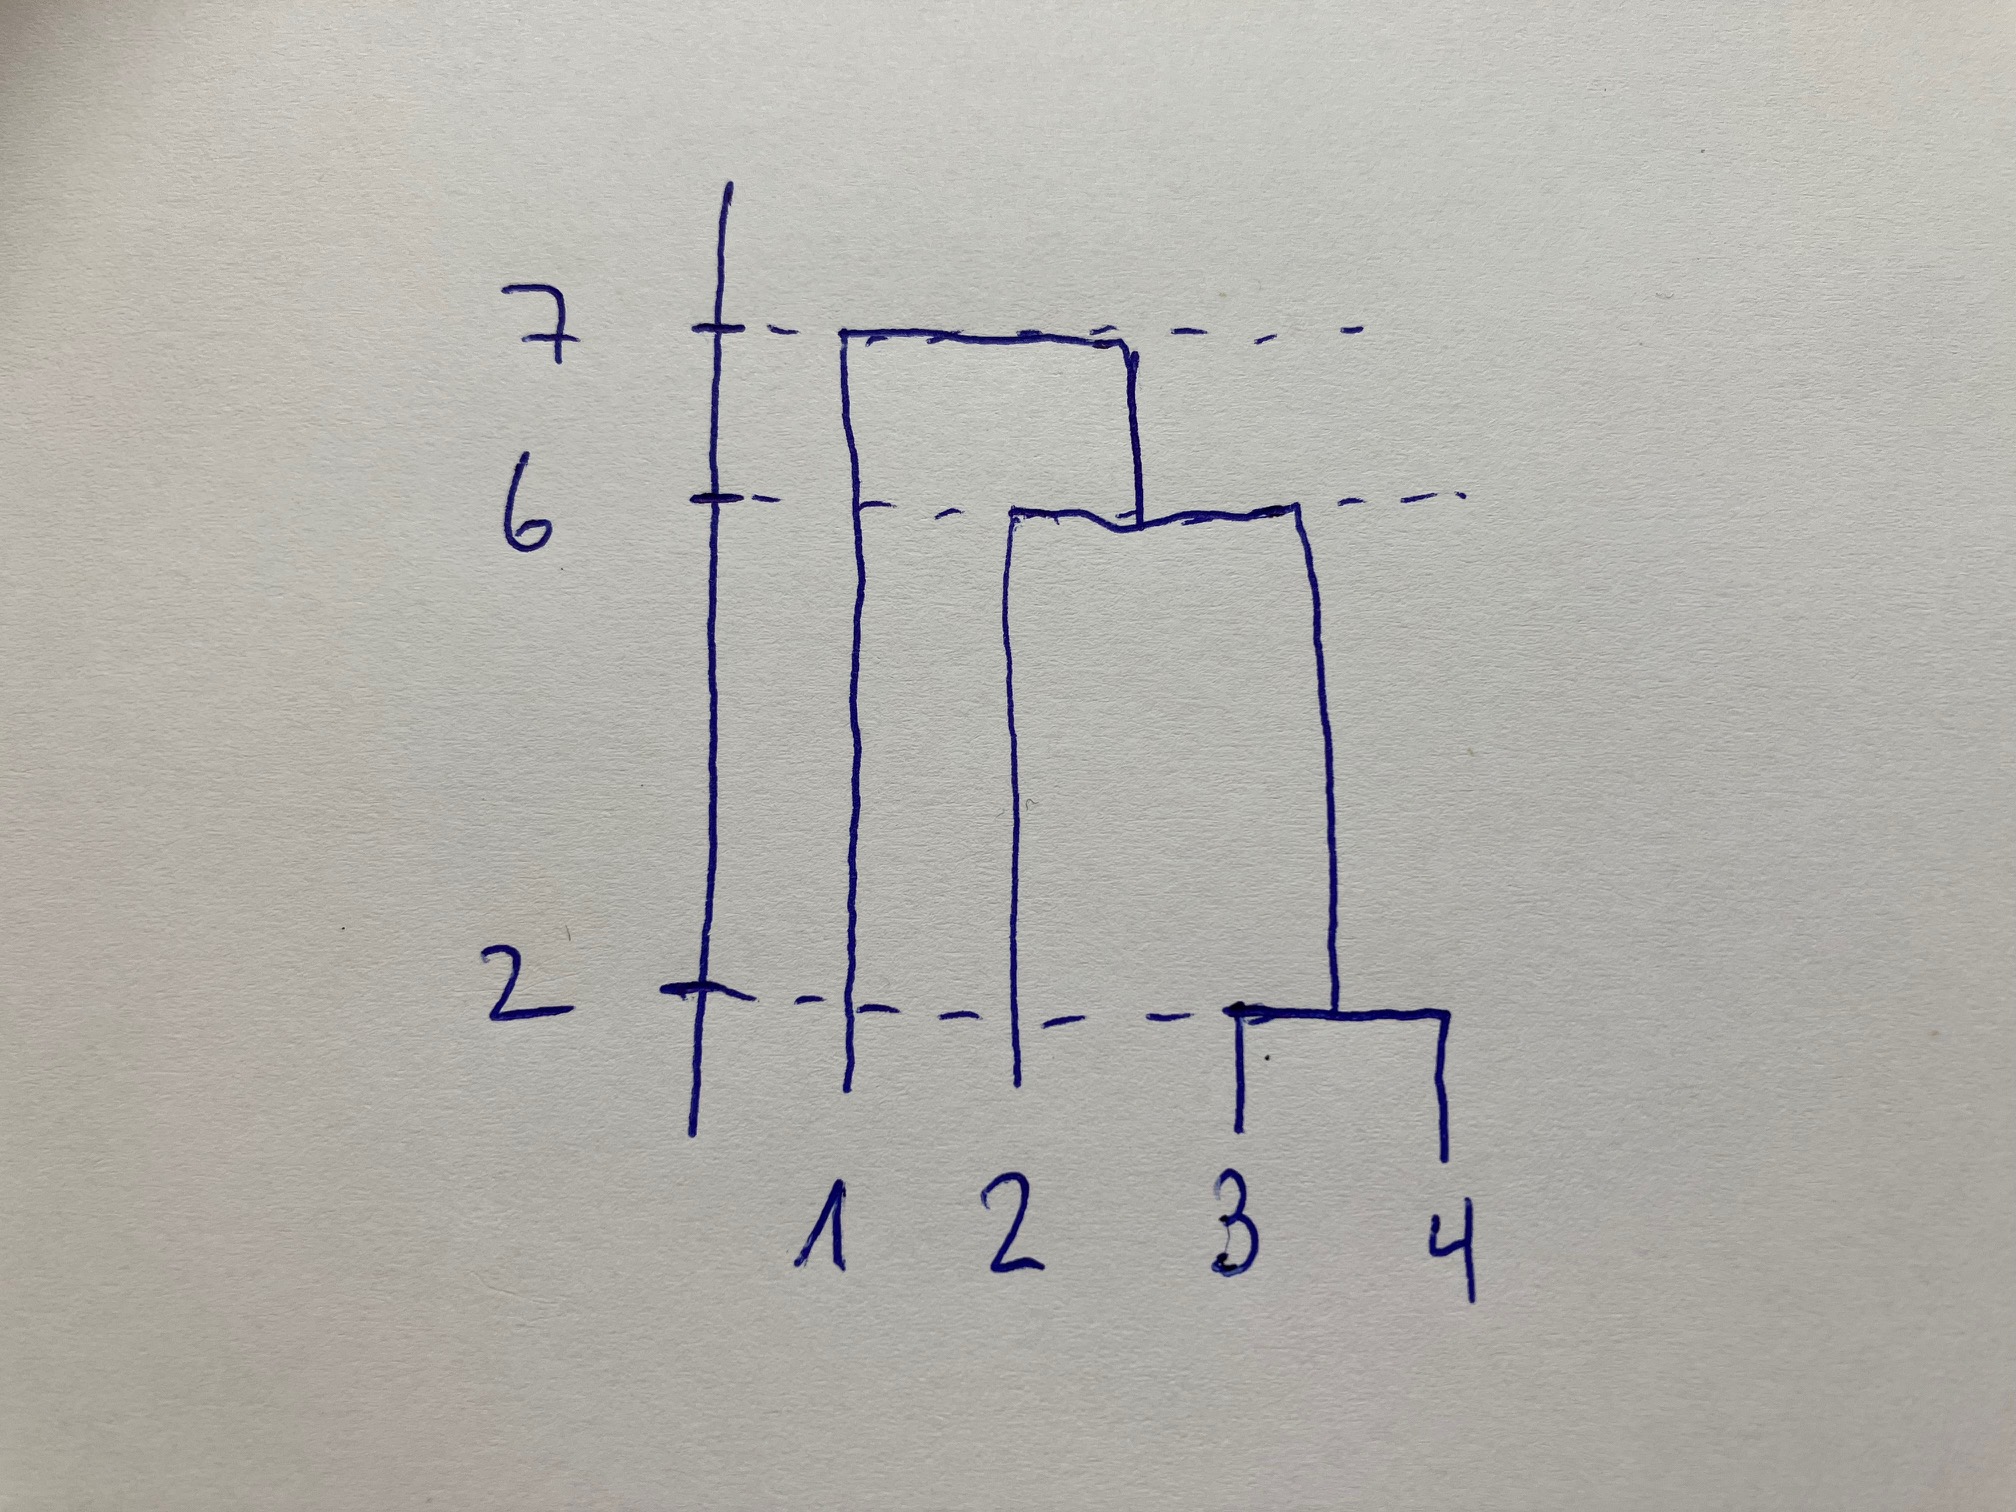 7
6
2
1 2 3 4